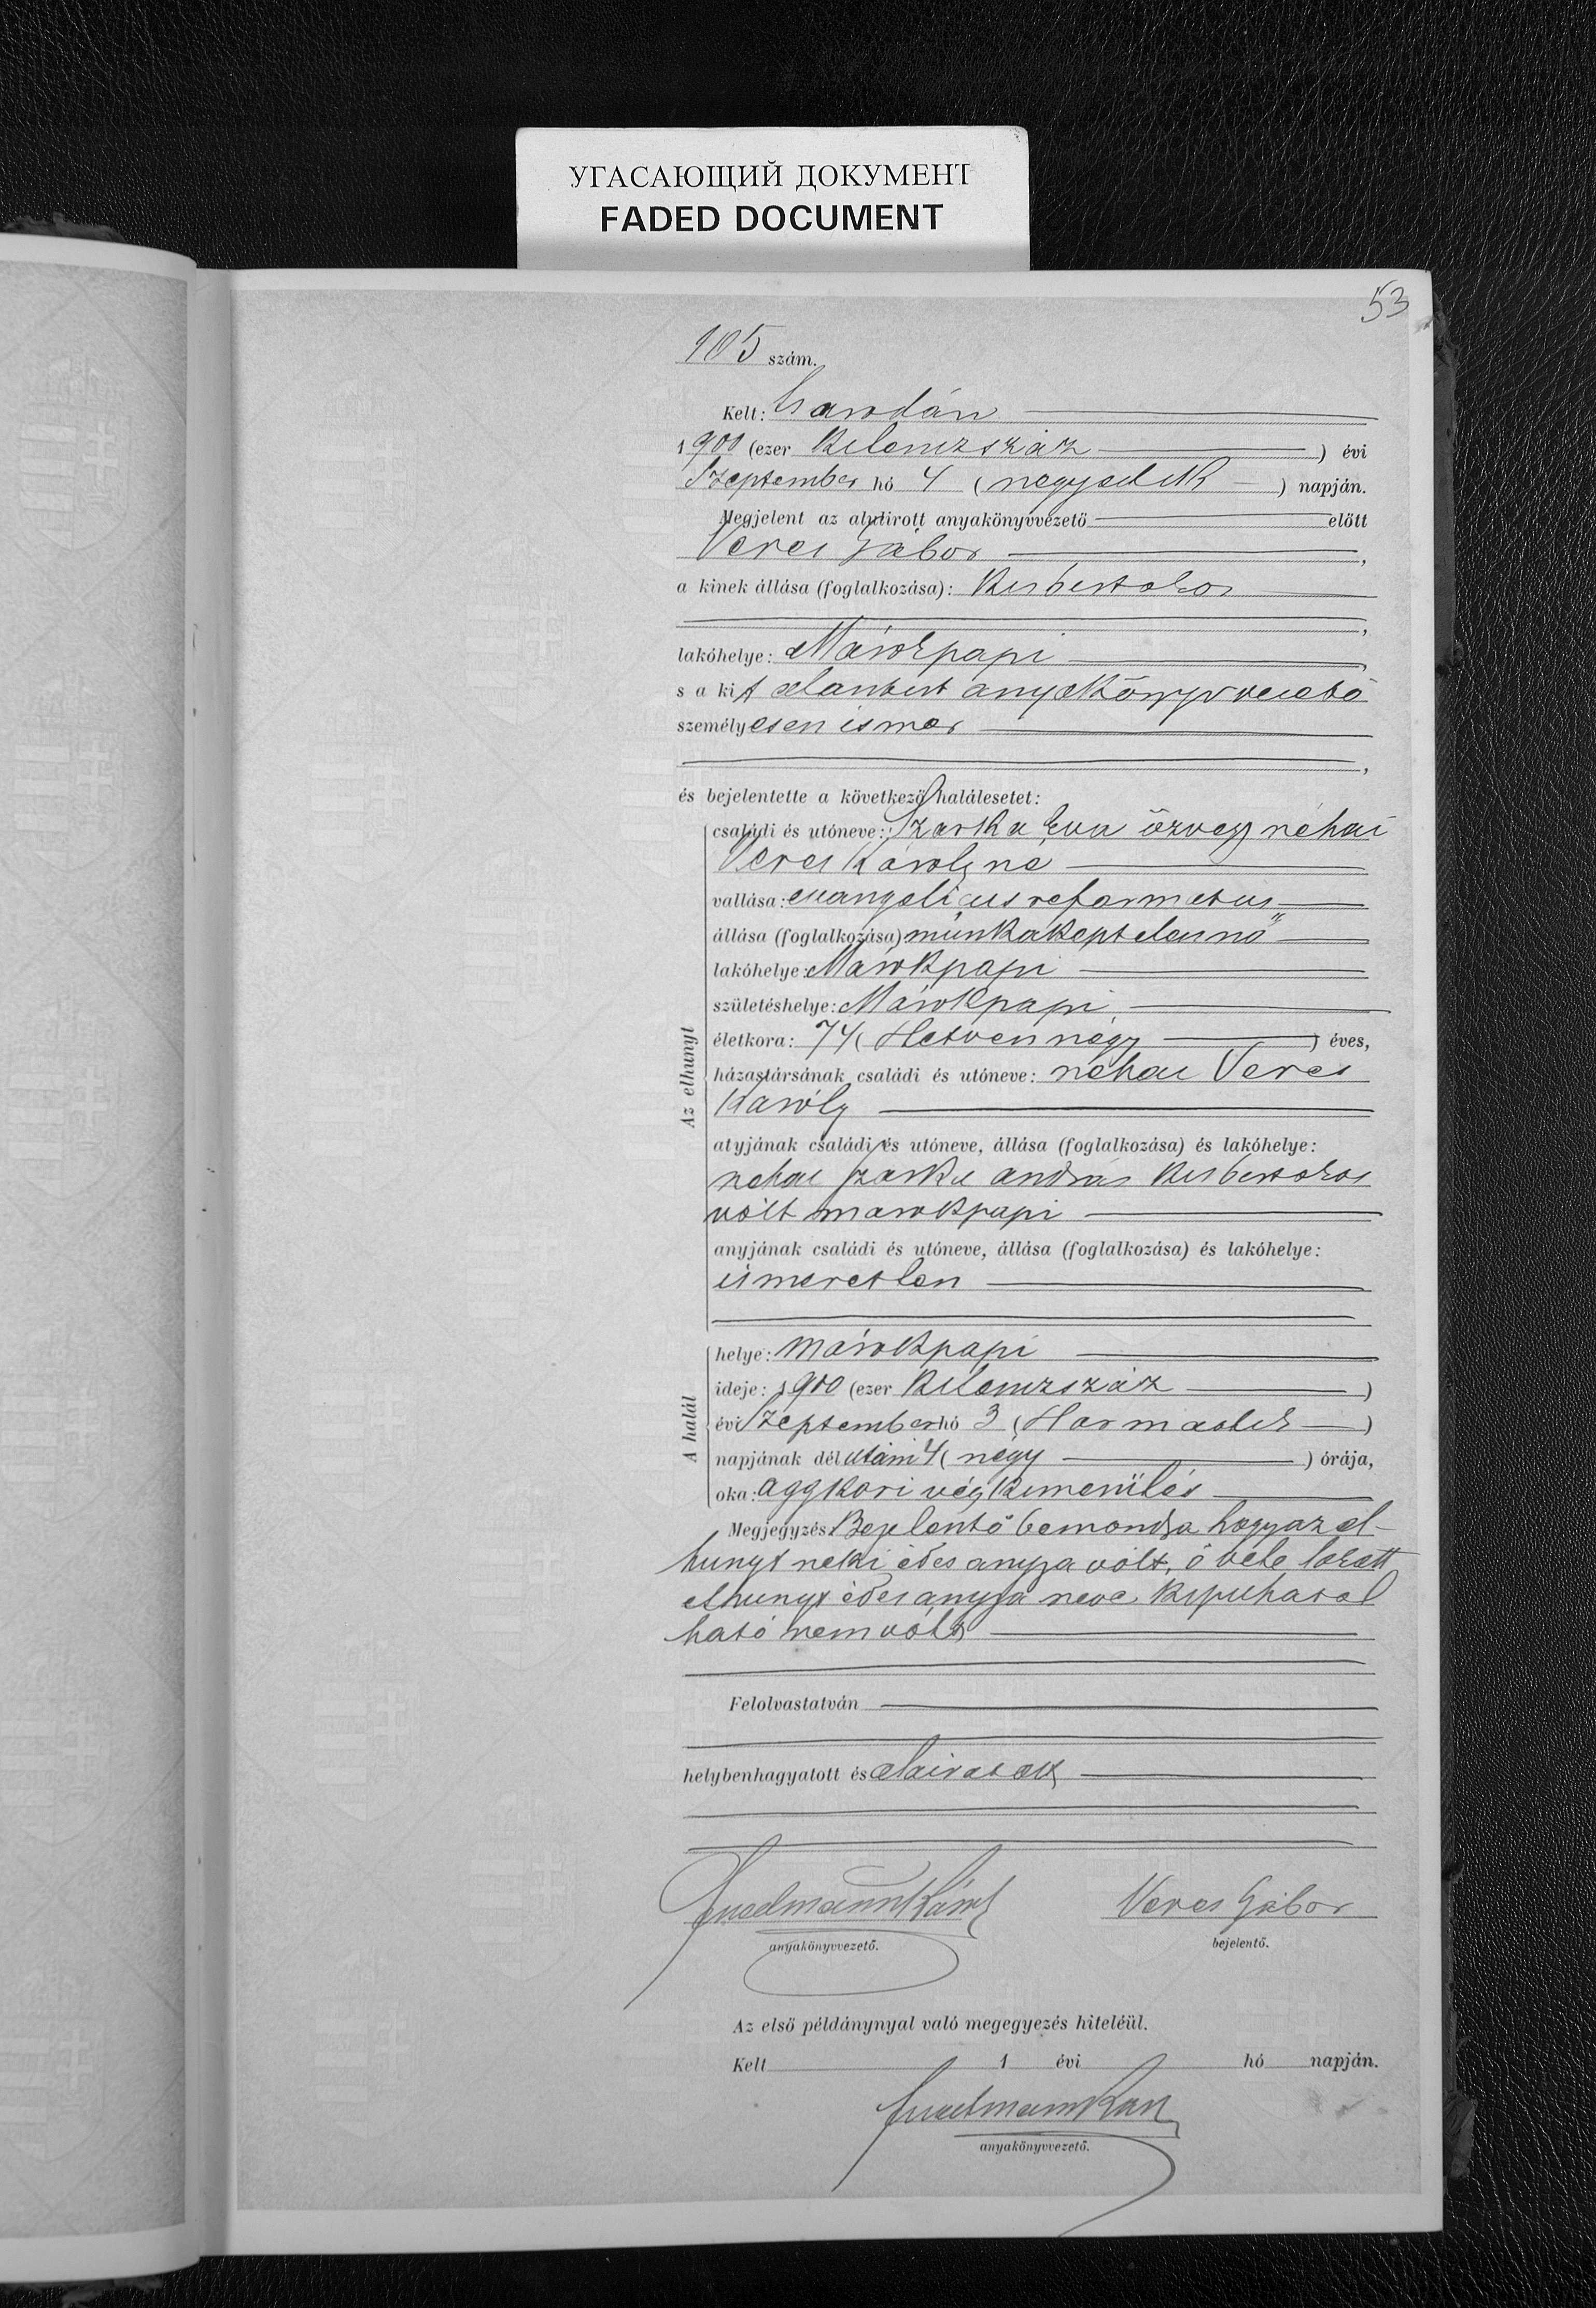 УГАСАЮЩИЙ ДОКУМЕНТ
FADED DOCUMENT
53
105 szám.
Kelt: Csarodán
1900 (ezer kilenczszáz) évi
Szeptember hó 4 (negyedik) napján.
Megjelent az alulirott anyakönyvvezető előtt
Veres Gábor,
a kinek állása (foglalkozása): kisbirtokos
lakóhelye: Márokpapi,
s a kit alantirt anyakönyvvezető
személyesen ismer
és bejelentette a következő halálesetet:
Az elhunyt
családi és utóneve: Szarka Éva özvegy néhai
Veres Károlyné
vallása: evangelicus reformatus
állása (foglalkozása) munkaképtelen nő
lakóhelye: Márokpapi
születéshelye: Márokpapi
életkora: 74 (Hetven négy) éves,
házastársának családi és utóneve: néhai Veres
Károly
atyjának családi és utóneve, állása (foglalkozása) és lakóhelye:
néhai Szarka András kisbirtokos
vólt márokpapi
anyjának családi és utóneve, állása (foglalkozása) és lakóhelye:
ismeretlen
A halál
helye: Márokpapi
ideje: 1900 (ezer kilenczszáz)
évi Szeptember hó 3 (Harmadik)
napjának délutáni 4 (négy) órája,
oka: aggkori végkimerülés
Megjegyzés: Bejelentő bemondja hogy az el-
hunyt neki édes anyja vólt, ő vele lakott
elhunyt édes anyja neve kipuhatol
ható nem vólt
Felolvastatván
helybenhagyatott és aláiratott
Veres Gábor
anyakönyvvezető. bejelentő.
Az első példánynyal való megegyezés hiteléül.
Kelt 1 évi hó napján.
anyakönyvvezető.